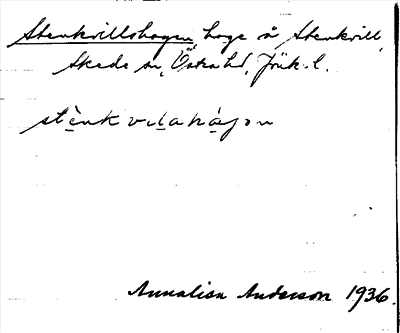 Stenkvillshagen, hage å Stenkvill,
Skede sn, Östra hd, Jönk. l.
stènkvılahágən
Annalisa Anderson 1936.